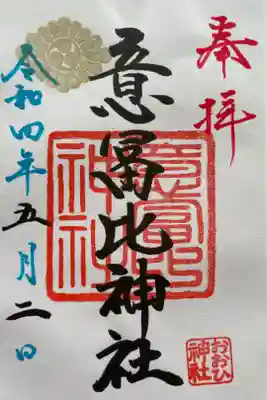 奉拝
意冨比神社
意富比
神社
令和四年五月二日
おおひ
神社